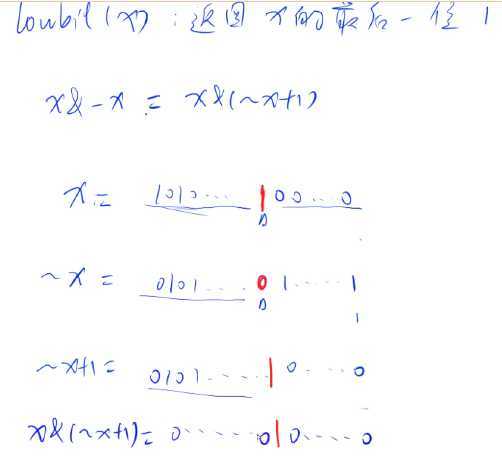 lowbit(x) : 返回 x 的最后一位 1
x&-x = x&(~x+1)
x = 1010... 100...0
~x = 0101.... 01.....1
1
~x+1 = 0101.....10....0
x&(~x+1)= 0.....010....0